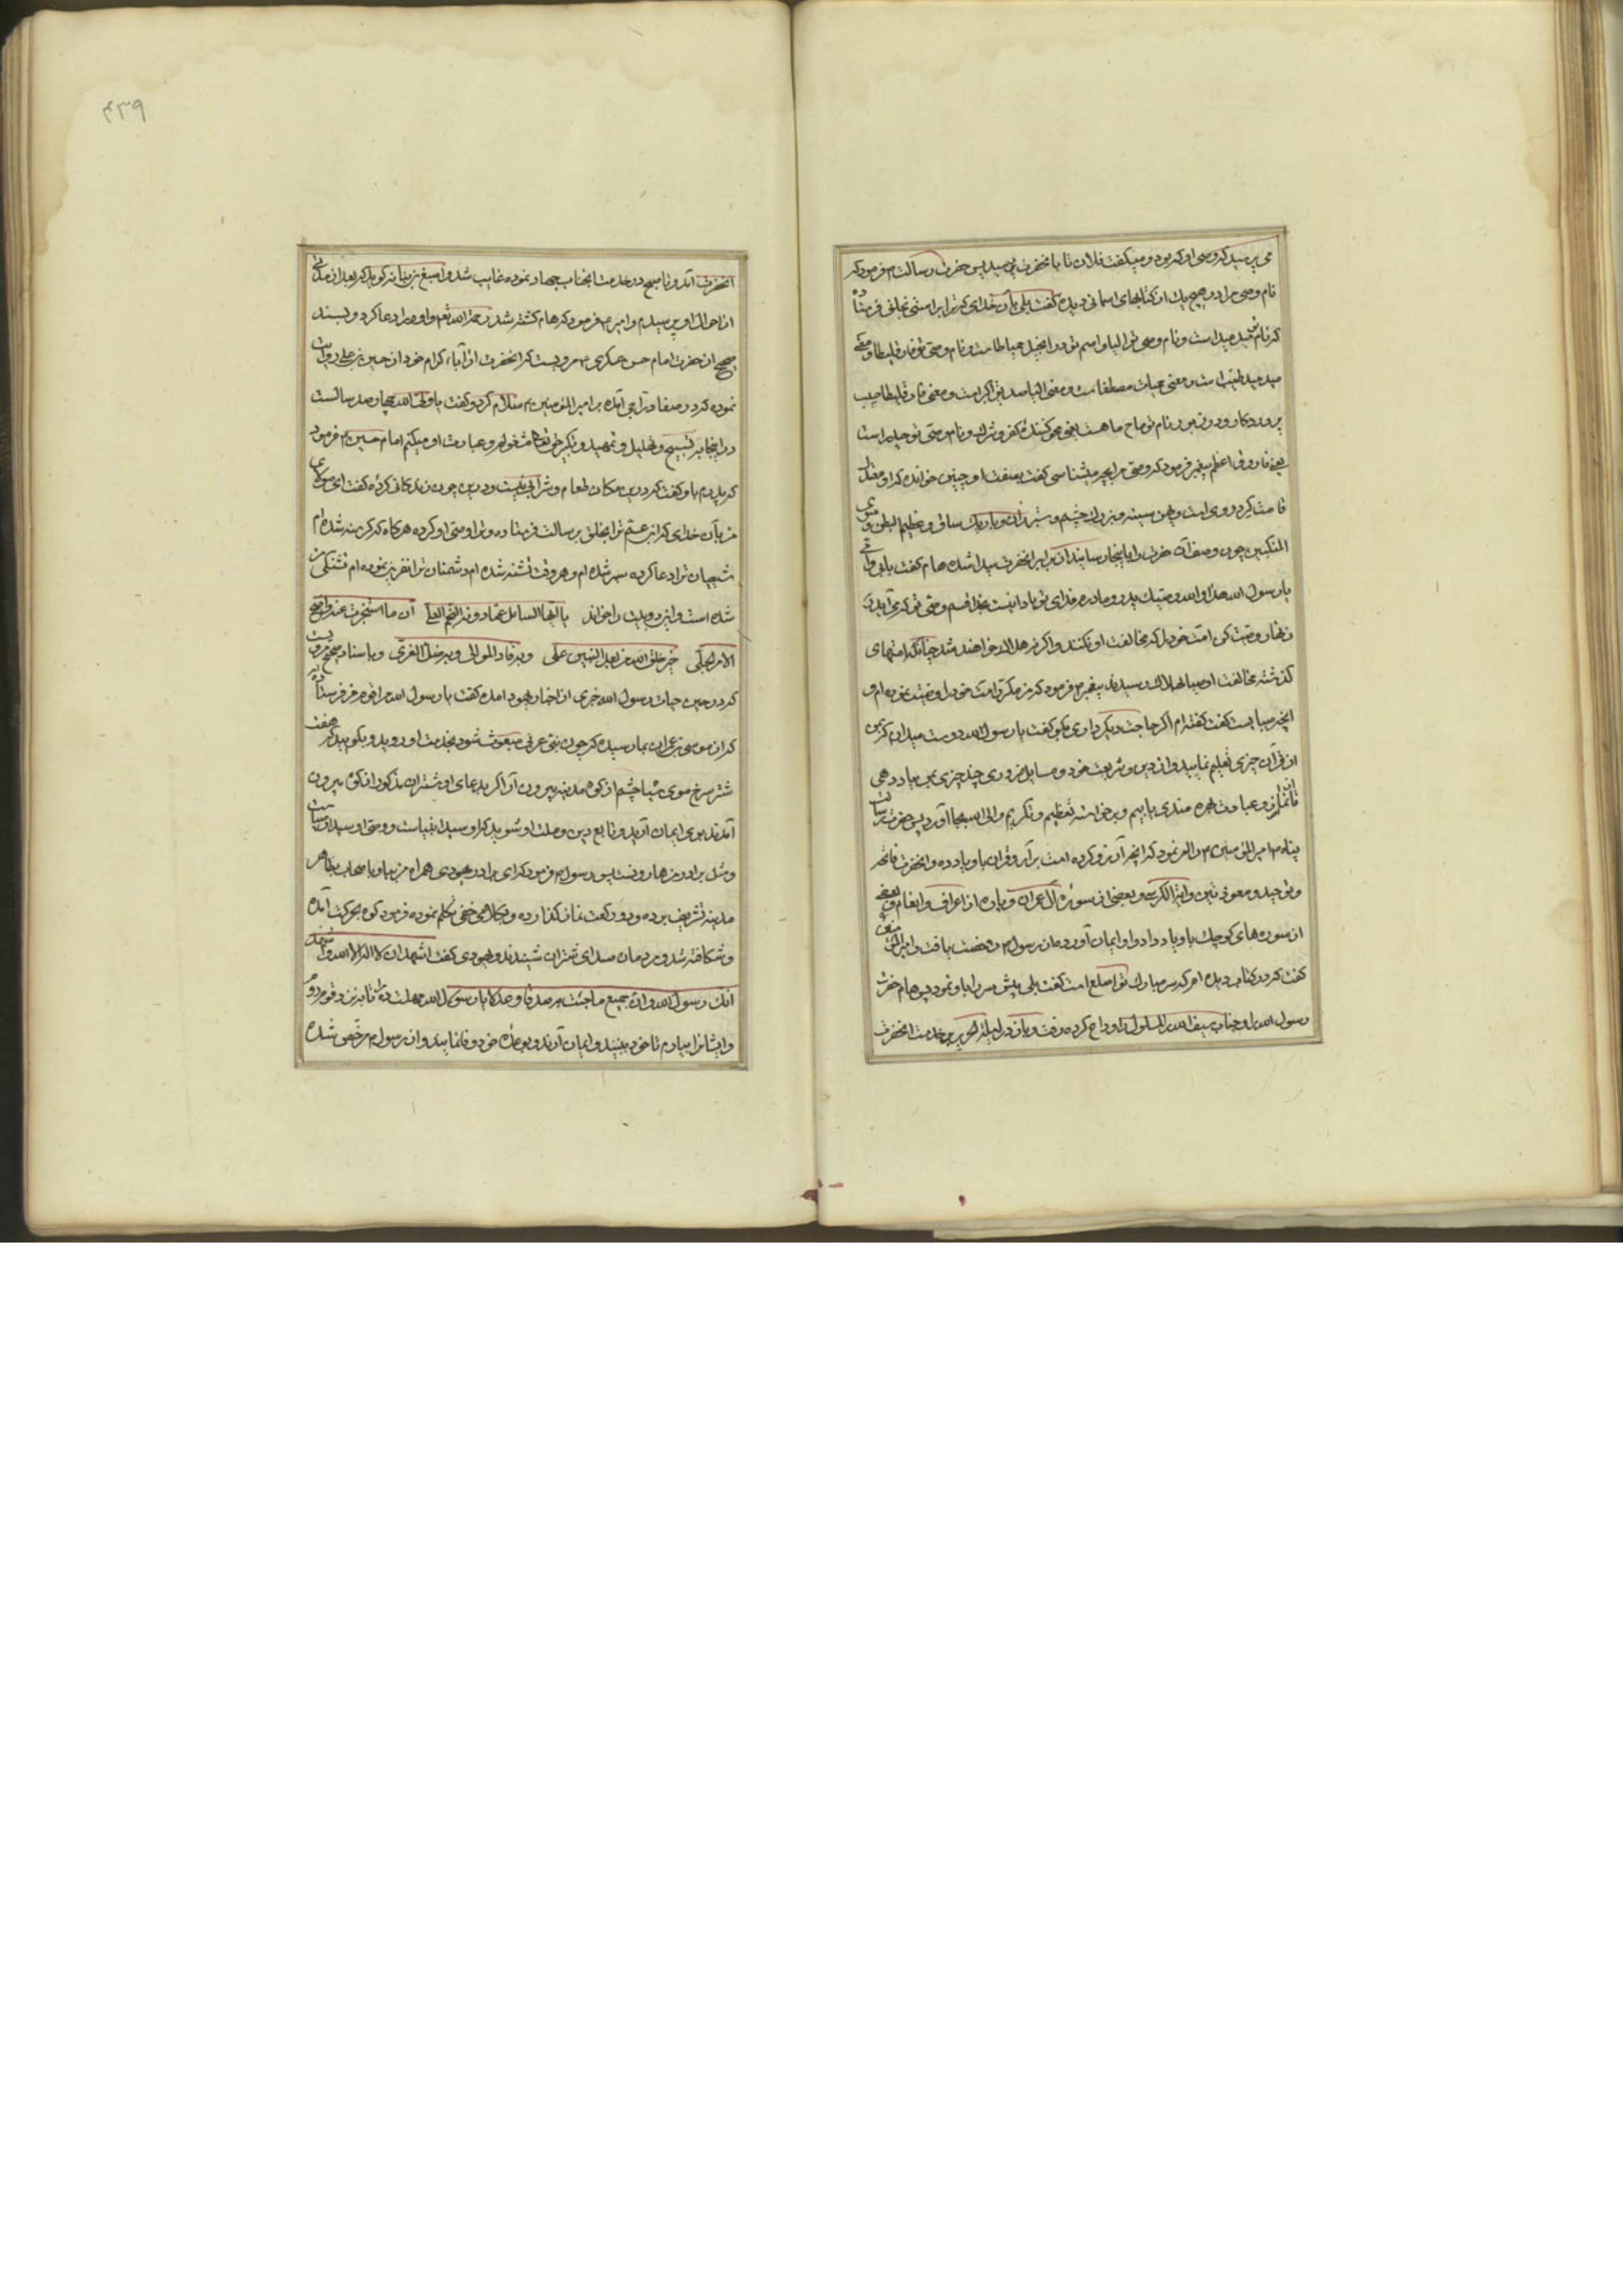 می پرسید که وصی او که بود و میگفت فلان تا بآنحضرت رسید پس حضرت رسالت م فرمود که
نام وصی مرا در هیچ یک از کتابهای آسمانی دیده گفت بلی بآن خدای که ترا براستی بخلق فرستاده
که نام میدمید است و نام وصی تو الیا و اسم تو در انجیل حمیاطا است و نام وصی تو فارقلیطا و معنی
میدمید طیب است و معنی حمیاطا مصطفا است و معنی الیا صدیق اکبر است و معنی فارقلیطا حبیب
پروردگار و در زبور نام تو ماح ماحست یعنی محو کنندهٔ کفر و شرک و نام وصی تو حیدر است
یعنی فاروق اعظم پیغمبر فرمود که وصی مرا بچه میشناسی گفت بصفت او چنین خوانده که او معتدل
قامت گرد روی است و پهن سینه و بزرگ چشم و شیر ران و باریک ساق و عظیم البطن و سوی
المنکبین چون وصف آن حضرت را باینجا رسانید از برابر آنحضرت پیدا شد هام گفت بابی و امی
یا رسول الله هذا والله وصیک پدر و مادرم فدای تو باد اینست بخدا قسم وصی تو که می آید
زنهار وصیت کن امت خود را که مخالفت او نکنند و اگرنه هلاک خواهند شد چنانکه امتهای
گذشته بمخالفت اوصیا بهلاک رسیدند پیغمبر م فرمود که من مکرر امت خود را وصیت نموده ام و
آنچه میبایست گفت گفته ام اگر حاجت دیگر داری بگو گفت یا رسول الله دوست میدارم که بمن
از قرآن چیزی تعلیم نمایید و از دین و شریعت خود و مسایل ضروری چند چیزی بمن یاد دهی
تا از نماز و عبادت بهره مندی یابیم و برخواسته تعظیم و تکریم والی الله بجا آورد پس حضرت رسالت
پناه م امیرالمؤمنین م را امر نمود که آنچه آرزو کرده است برآر و قرآن باو یاد ده و آنحضرت فاتحه
و توحید و معوذتین و آیة الکرسی و بعضی از سورهٔ آل عمران و پاره از اعراف و انعام و بعضی
از سوره های کوچک باو یاد داد و او ایمان آورد و از رسول م رخصت یافت و امیرالمؤمنین
گفت که در کتاب دیده ام که سر مبارک تو اصلع است گفت بلی پیش سر را باو نمود پس هام حضرت
رسول الله را و جناب سیف الله المسلول را وداع کرده رفت و باز در لیلة الهریر بخدمت آنحضرت
۴۳۹
آنحضرت آمد و تا صبح در خدمت آنجناب جهاد نموده غایب شد و اصبغ بن نباته گوید که بعد از مدتی
از احوال او پرسیدم و امیر م فرمود که هام کشته شد رحمة الله تعم و او را دعا کرد و بسند
صحیح از حضرت امام حسن عسکری م مرویست که آنحضرت از آباء کرام خود از حسین بن علی روایت
نموده که در صفا دراجی آمده بر امیر المؤمنین م سلام کرد و گفت یا ولی الله چهار صد سالست
در اینجا به تسبیح و تهلیل و تمجید و تکبیر حق تعالی مشغولم و عبادت او میکنم امام حسین م فرمود
که پدرم باو گفت که درین مکان طعام و شرابی نیست و درین چون زندگانی کردهٔ گفت ای مولای
من بآن خدای که ابن عم ترا بخلق برسالت فرستاده و ترا وصی او کرده هرگاه که گرسنه شده ام
شیعیان ترا دعا کرده سیر شده ام و هر وقت تشنه شده ام دشمنان ترا نفرین نموده ام تشنگی من
شده است و این دو بیت را خواند یا ایها السائل عما دونه النجم العلی ان ما استخبرت عنه واضح
الامر الجلی خیر خلق الله من بعد النبیین علی وبه فاد الموالی وبه ضل الغوی و باسناد صحیح مرویست
که در حین حیات رسول الله حبری از احبار یهود آمده گفت یا رسول الله مرا قوم من فرستاده اند
که از موسی بن عمران بما رسیده که چون نبی عربی مبعوث شود بخدمت او روید و بگویید که هفت
شتر سرخ موی سیاه چشم از کوه مدینه بیرون آر اگر بدعای او شتران مذکور از کوه بیرون
آمدند بوی ایمان آرید و تابع دین و ملت او شوید که او سید انبیاست و وصی او سید اوصیاست
و مثل برادر من هارونست پس رسول م فرمود که ای برادر یهودی همراه من بیا و با صحاب بظاهر
مدینه تشریف برده و دو رکعت نماز گذارده و بکلامی خفی تکلم نموده فرمود کوه بحرکت آمده
و شکافته شد و مردمان صدای شتران شنیدند و یهودی گفت اشهد ان لا اله الا الله و اشهد
انک رسول الله و ان جمیع ما جئت به صدقا و عدلا یا رسول الله مهلت ده تا بنزد قوم روم
و ایشانرا بیارم تا خود ببینند و ایمان آرند و بوعدهٔ خود وفا نمایند و از رسول م مرخص شده